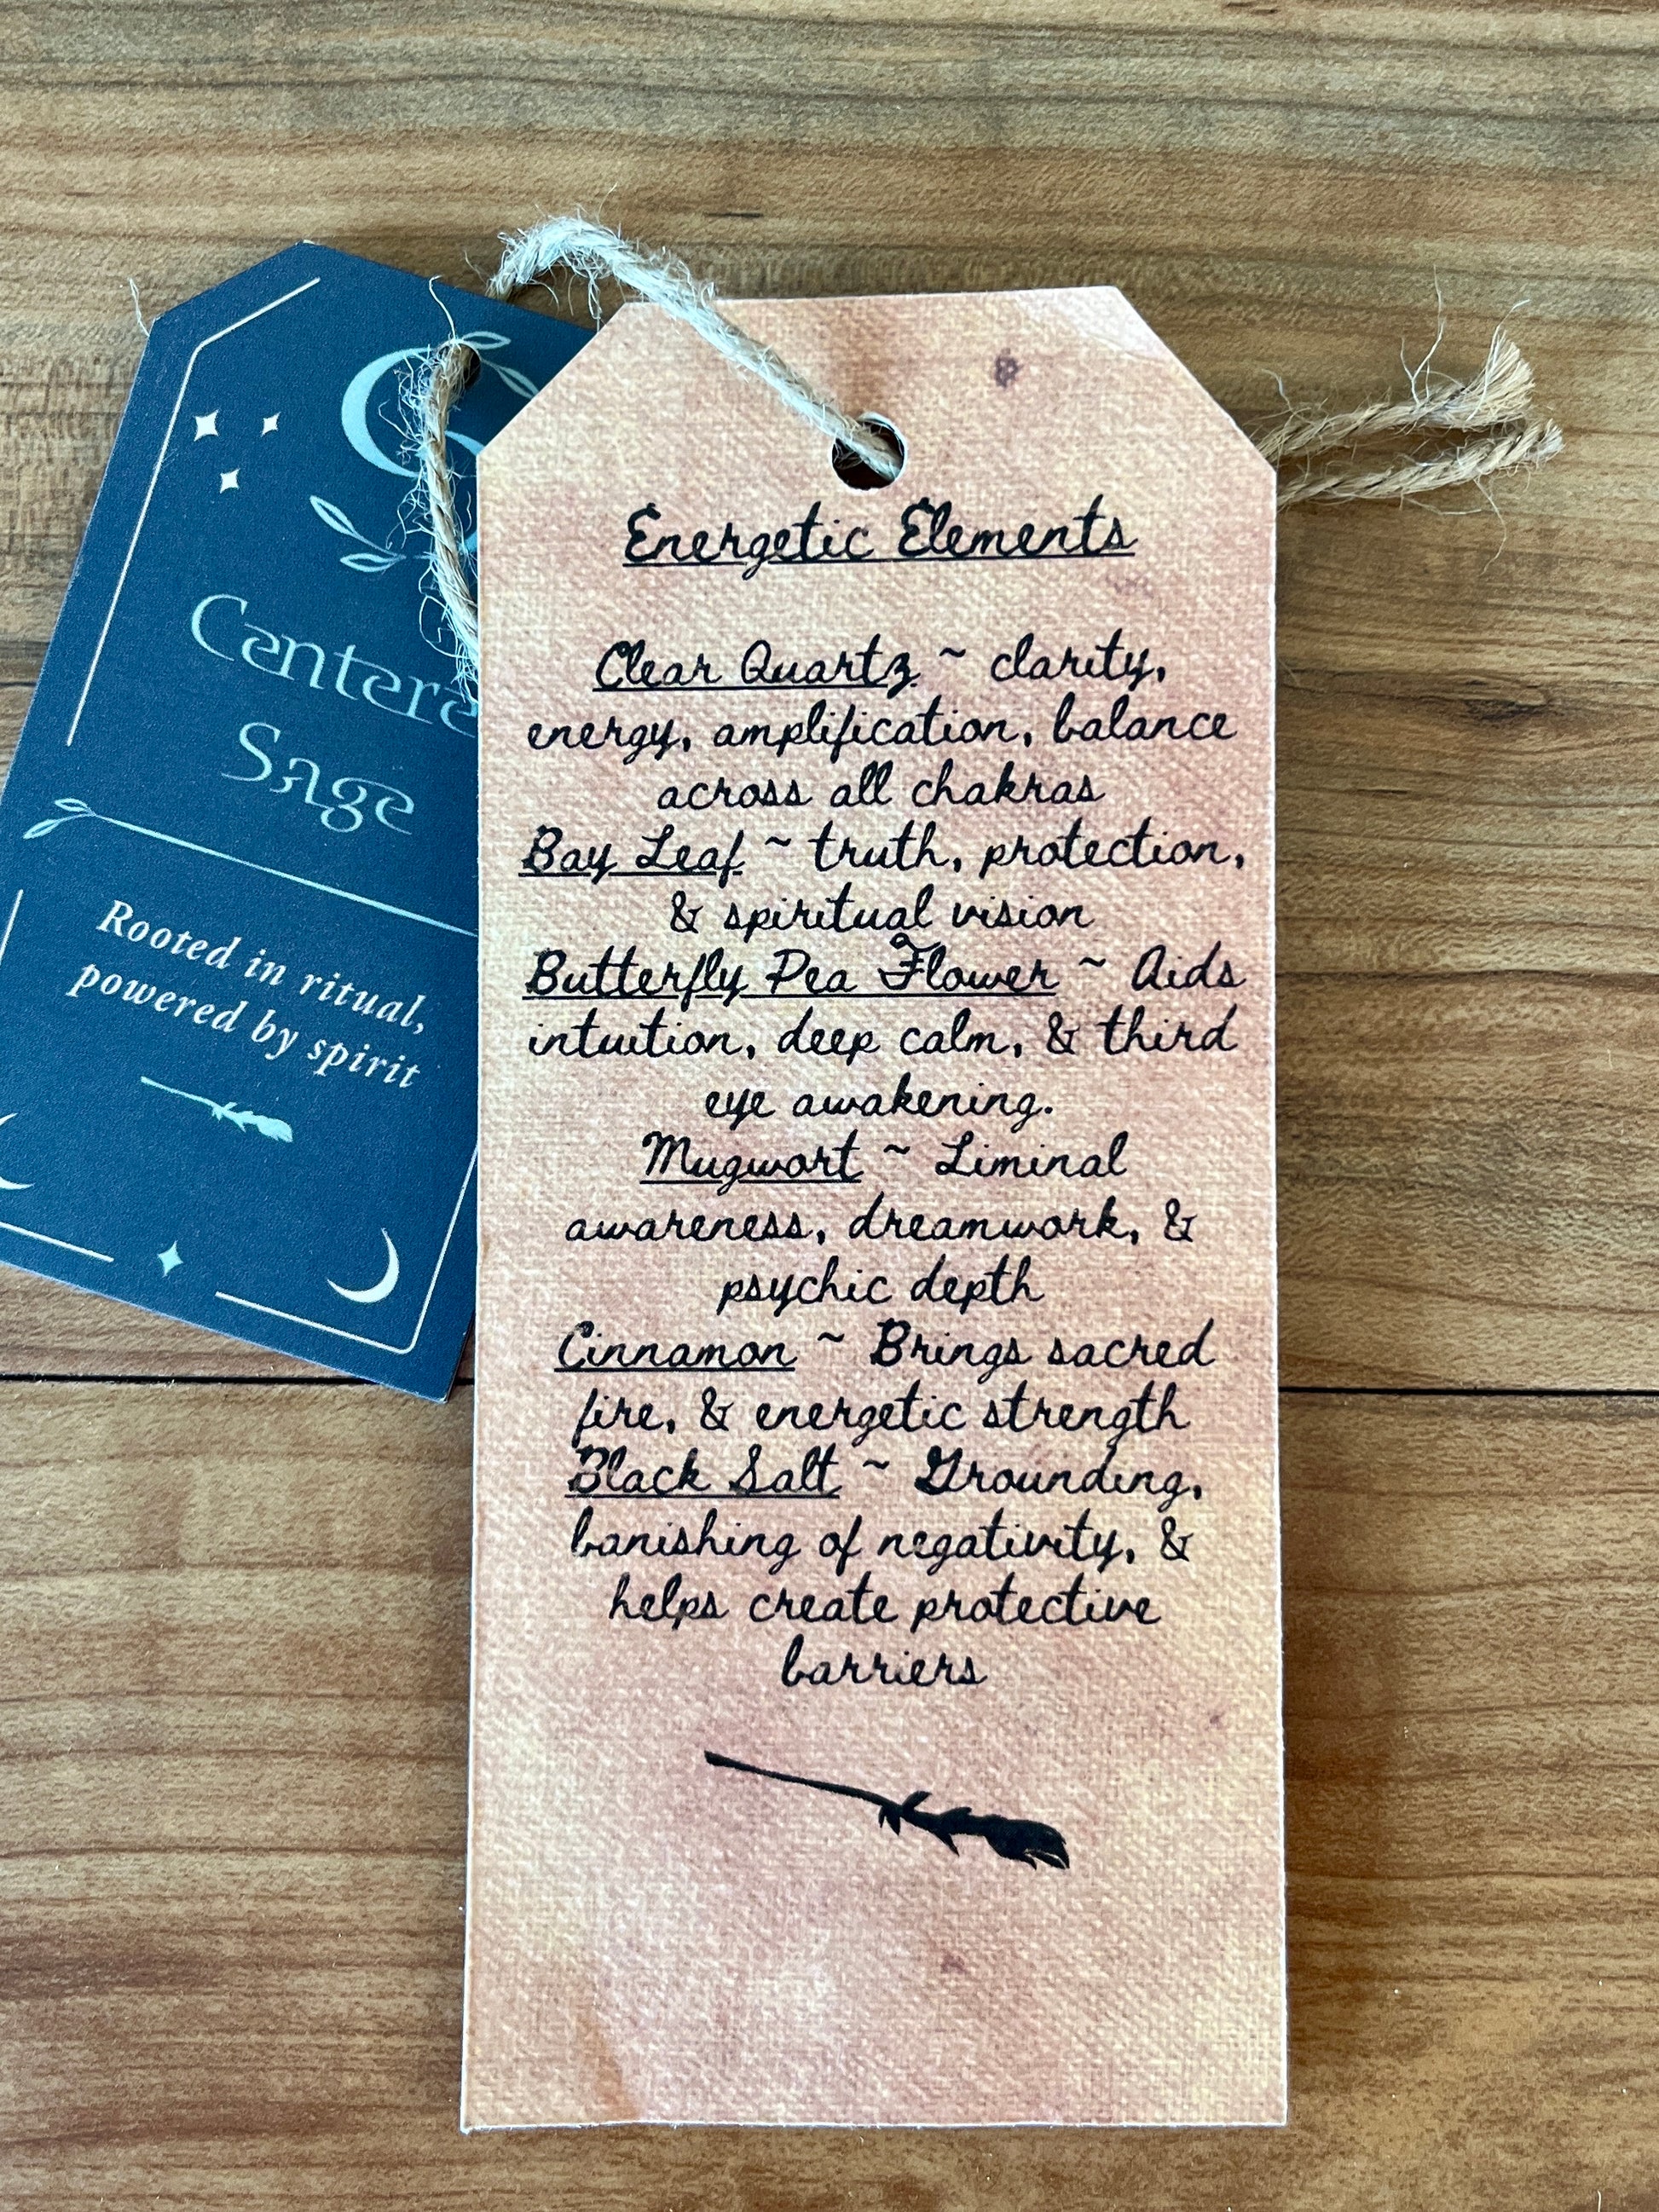 Centere
Sage
Rooted in ritual,
powered by spirit
Energetic Elements
Clear Quartz ~ clarity,
energy, amplification, balance
across all chakras
Bay Leaf ~ truth, protection,
& spiritual vision
Butterfly Pea Flower ~ Aids
intuition, deep calm, & third
eye awakening.
Mugwort ~ Liminal
awareness, dreamwork, &
psychic depth
Cinnamon ~ Brings sacred
fire, & energetic strength
Black Salt ~ Grounding,
banishing of negativity, &
helps create protective
barriers